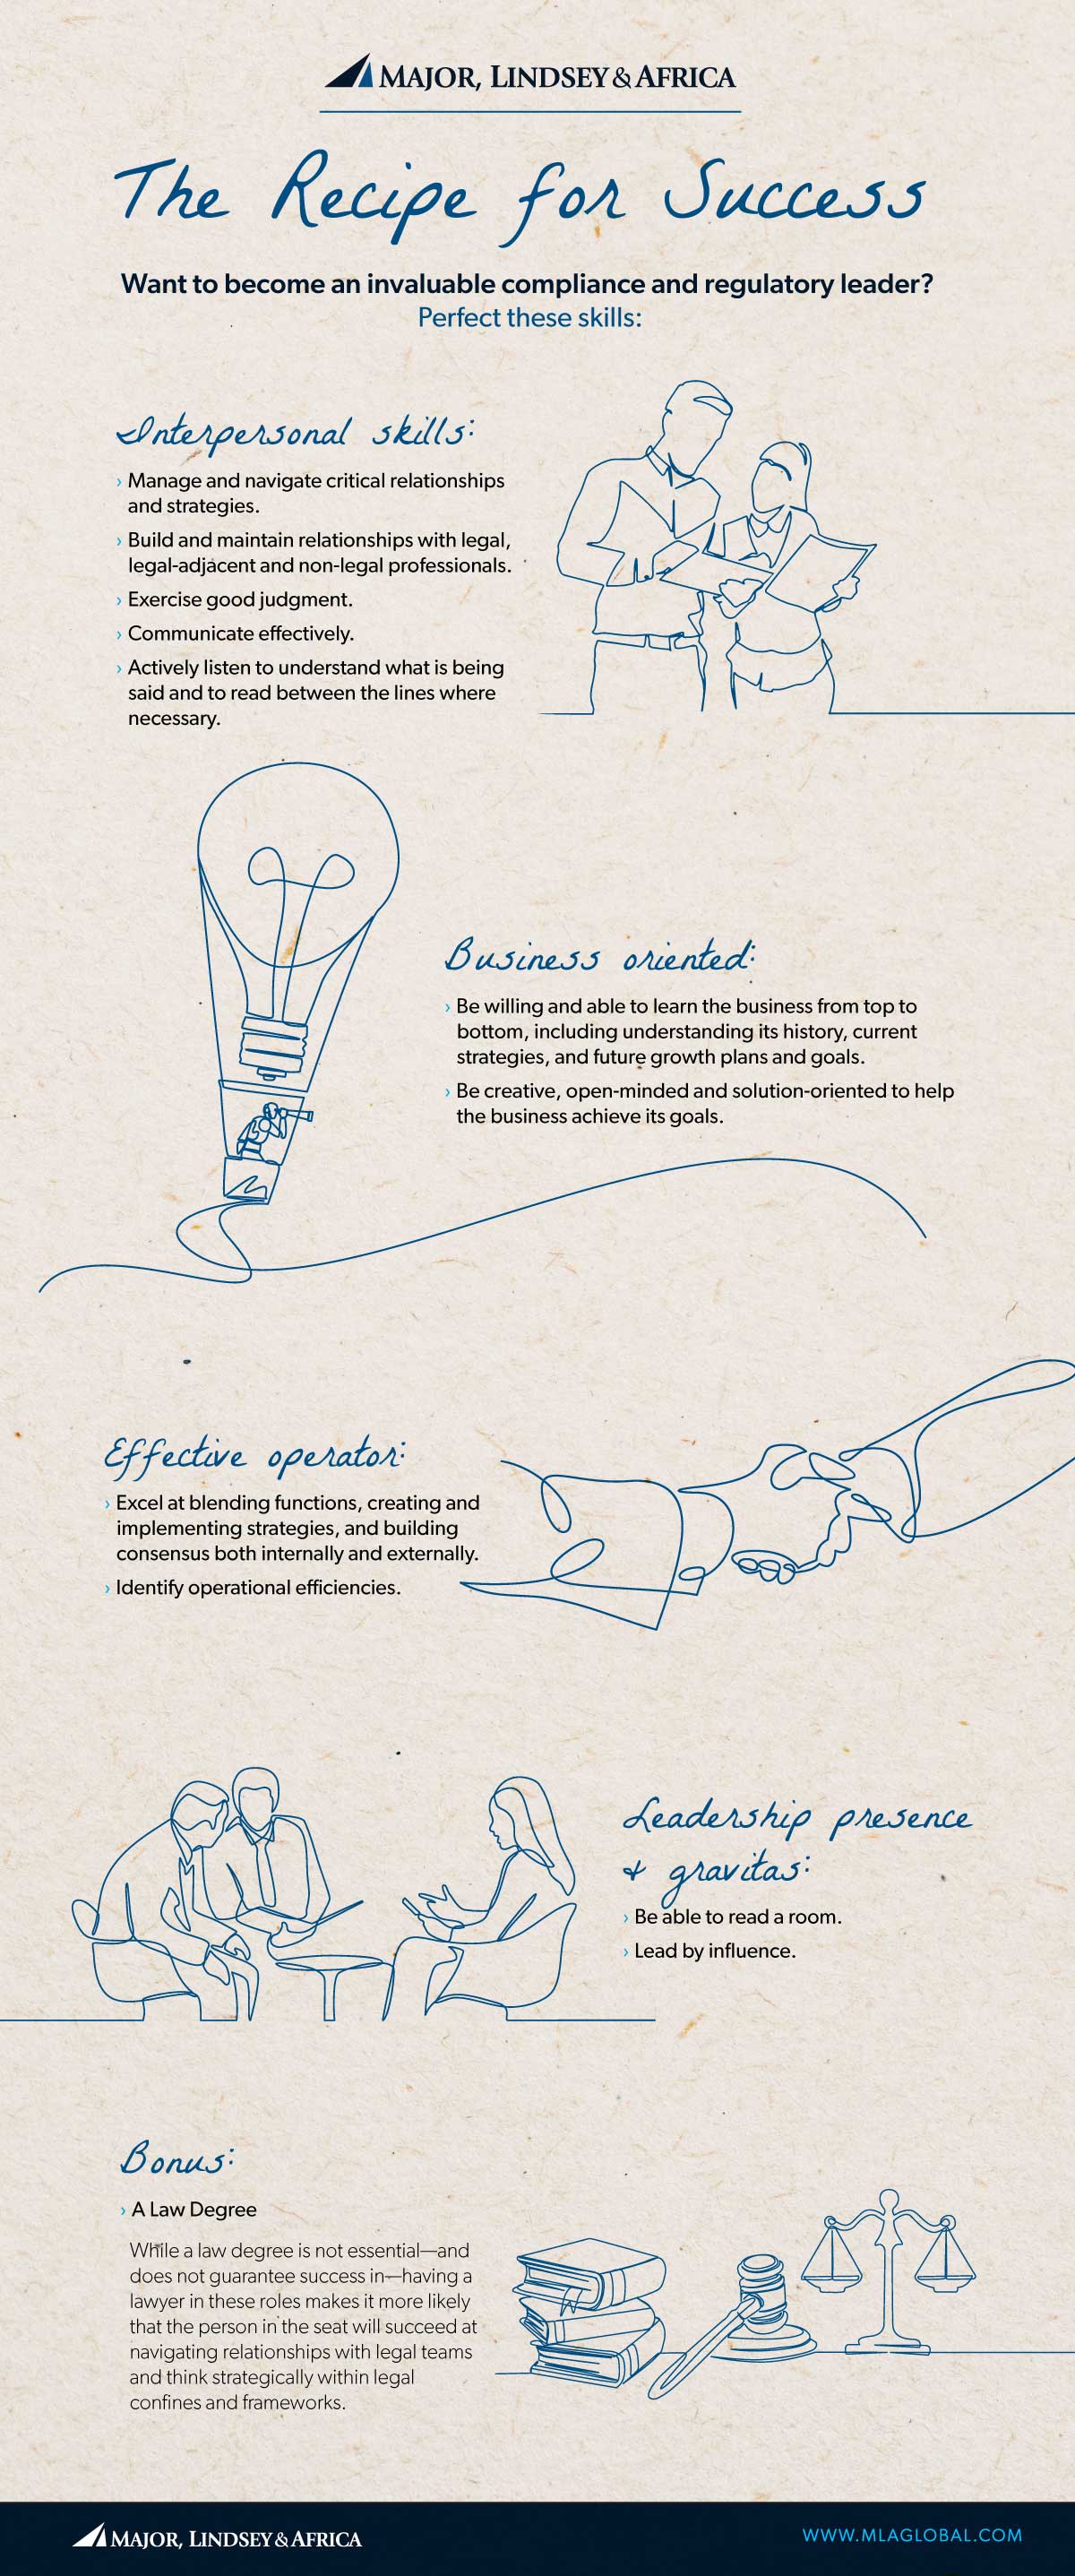 MAJOR, LINDSEY & AFRICA
The Recipe for Success
Want to become an invaluable compliance and regulatory leader?
Perfect these skills:
Interpersonal skills:
› Manage and navigate critical relationships
and strategies.
› Build and maintain relationships with legal,
legal-adjacent and non-legal professionals.
› Exercise good judgment.
› Communicate effectively.
› Actively listen to understand what is being
said and to read between the lines where
necessary.
Business oriented:
› Be willing and able to learn the business from top to
bottom, including understanding its history, current
strategies, and future growth plans and goals.
› Be creative, open-minded and solution-oriented to help
the business achieve its goals.
Effective operator:
› Excel at blending functions, creating and
implementing strategies, and building
consensus both internally and externally.
› Identify operational efficiencies.
Leadership presence
& gravitas:
› Be able to read a room.
› Lead by influence.
Bonus:
› A Law Degree
While a law degree is not essential—and
does not guarantee success in—having a
lawyer in these roles makes it more likely
that the person in the seat will succeed at
navigating relationships with legal teams
and think strategically within legal
confines and frameworks.
MAJOR, LINDSEY & AFRICA
WWW.MLAGLOBAL.COM